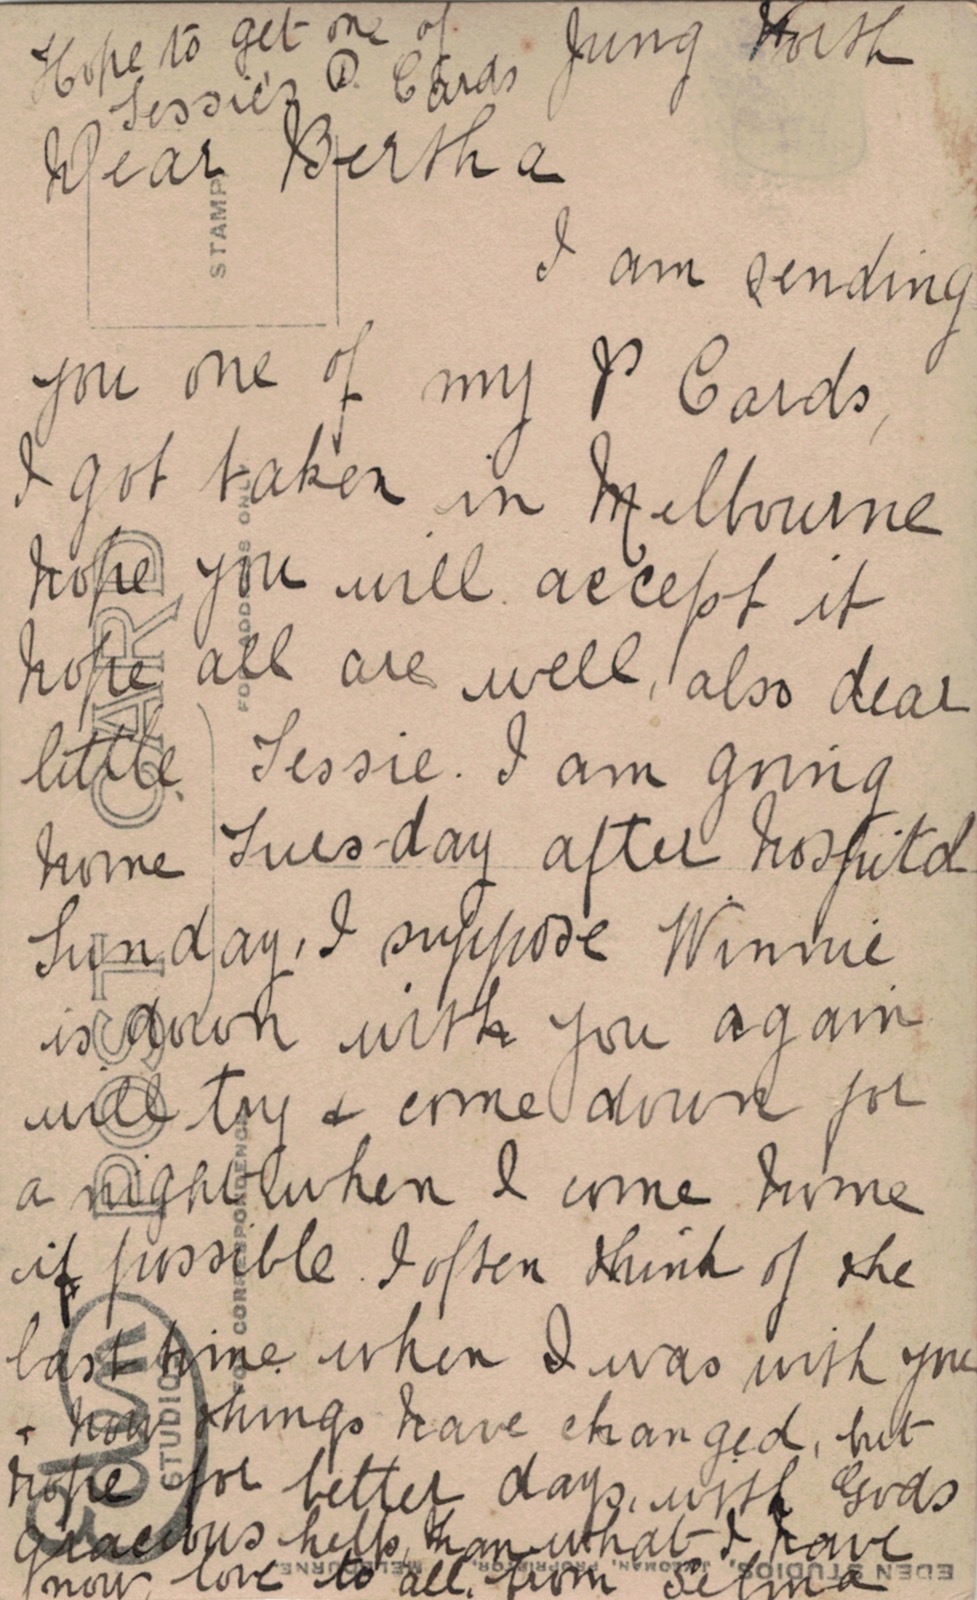 Hope to get one of
Jessie's P. Cards
Jung North
Dear Bertha
I am sending
you one of my P Cards,
I got taken in Melbourne
hope you will accept it
hope all are well, also dear
little Jessie. I am going
home Tues-day after hospital
Sunday, I suppose Winnie
is down with you again
will try & come down for
a night when I come home
if possible. I often think of the
last time when I was with you
& how things have changed, but
hope for better days, with Gods
gracious help, than what I have
now, love to all, from Selma
STAMP
POST CARD
FOR ADDRESS ONLY
FOR CORRESPONDENCE
Eden
STUDIOS
EDEN STUDIOS, PROPRIETOR, MELBOURNE